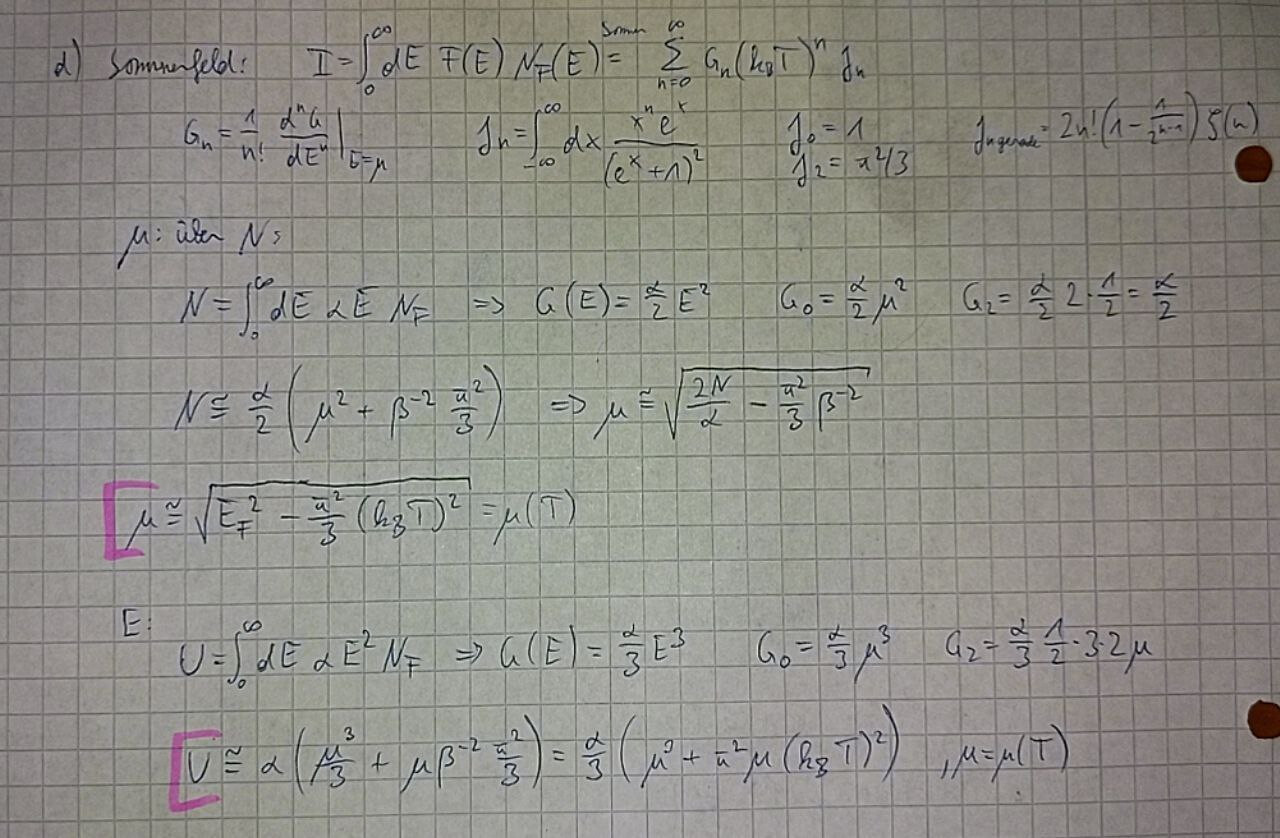 d) Sommerfeld: I = ∫₀^∞ dE F(E) N_F(E) =^{Somm} Σ_{n=0}^∞ G_n (k_B T)^n J_n
G_n = 1/n! d^nG/dE^n |_{E=μ} J_n = ∫_{-∞}^∞ dx x^n e^x/(e^x+1)² J_0 = 1 J_2 = π²/3 J_{n gerade} = 2n! (1 - 1/2^{n-1}) ζ(n)
μ: über N:
N = ∫₀^∞ dE αE N_F => G(E) = α/2 E² G_0 = α/2 μ² G_2 = α/2 2·1/2 = α/2
N ≅ α/2 (μ² + β^{-2} π²/3) => μ ≅ √(2N/α - π²/3 β^{-2})
μ ≅ √(E_F² - π²/3 (k_B T)²) = μ(T)
E:
U = ∫₀^∞ dE αE² N_F => G(E) = α/3 E³ G_0 = α/3 μ³ G_2 = α/3 1/2·3·2μ
U ≅ α (μ³/3 + μβ^{-2} π²/3) = α/3 (μ³ + π²μ (k_B T)²) , μ=μ(T)